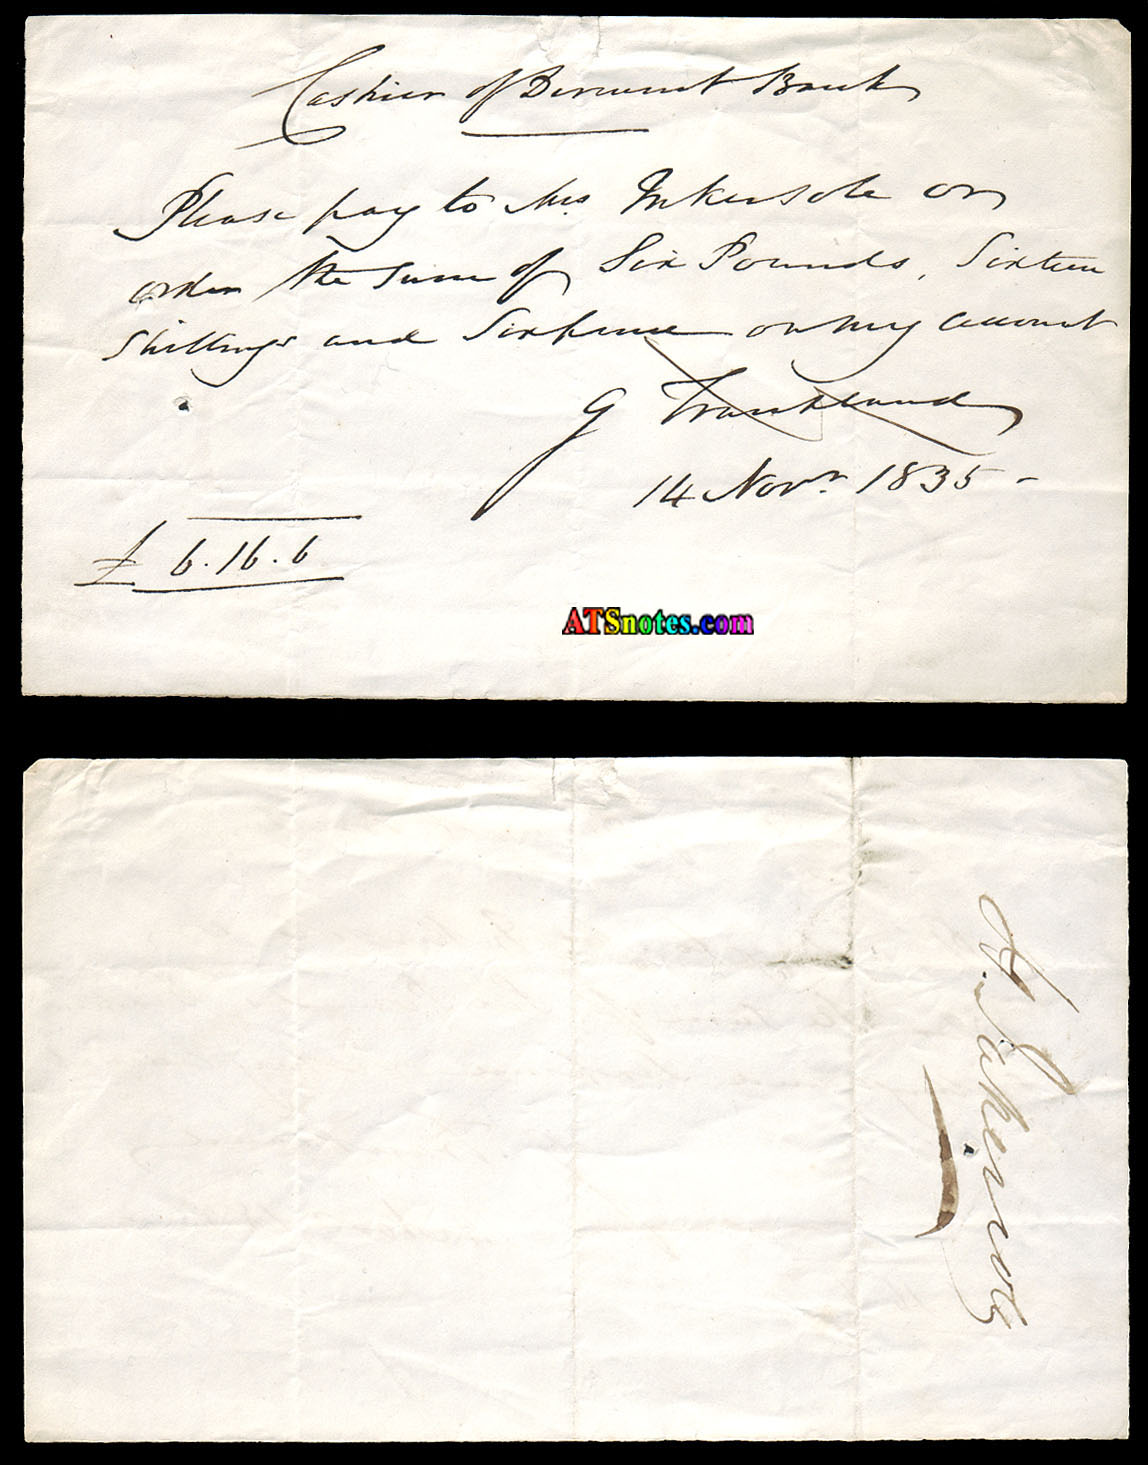 Cashier of Derwent Bank
Please pay to Mrs. Inkersole or
order the sum of Six Pounds, Sixteen
Shillings and Sixpence on my account
G Frankland
14 Novr. 1835 -
£ 6.16.6
ATSnotes.com
H.